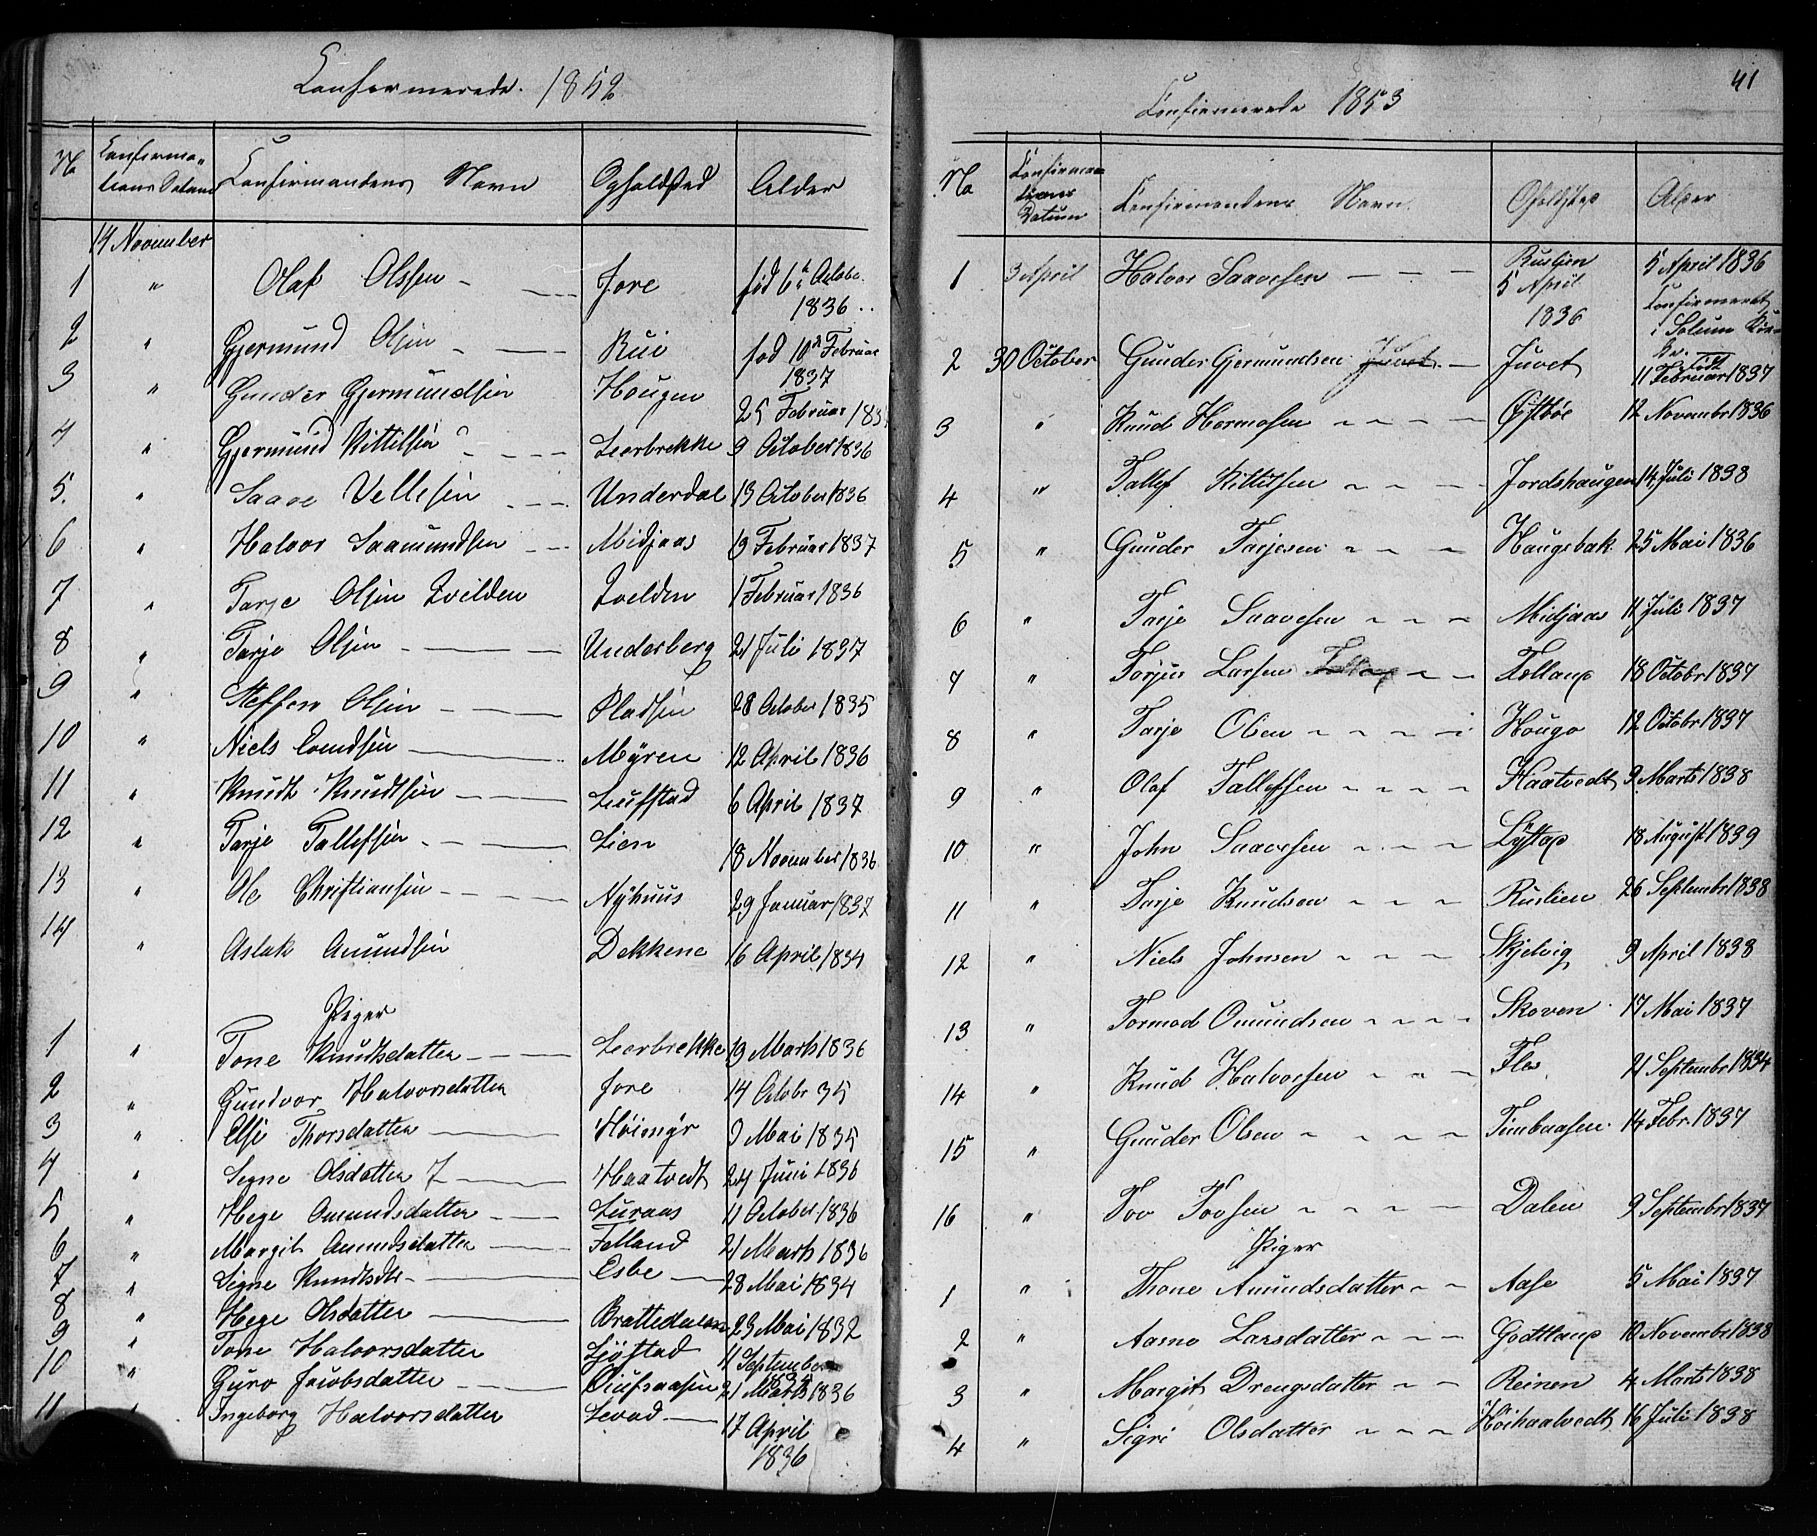 Confirmerede. 1852
No Confirma- Confirmandens Navn Opholdsted Alder
tions Datum
14 November
1 " Olaf Olssen Jore fød 6te Octobe.
1836
2 " Gjermund Olsen Rui fød 10de Februar
1837
3 " Gunder Gjermundsen Hougen 25 Februar 183
4 " Gjermund Kittilsen Leerbrekke 9 October 1836
5. " Saave Vellesen Underdal 13 October 1836
6 " Halvor Saamundsen Midjaas 13 Februar 1837
7 " Tarje Olsen Kvilden Kvelden 1 Februar 1836
8 " Tarje Olsen Underberg 21 Juli 1837
9 " Steffen Olsen Pladsen 28 October 1835
10 " Niels Evindsen Myren 12 April 1836
11 " Knudt Knudtsen Leufstad 6 April 1837
12 " Tarje Tallefsen Lien 18 November 1836
13 " Ole Christiansen Nyhuus 29 Januar 1837
14 " Aslak Amundsen Dekkene 16 April 1834
Piger
1 " Tone Knudtsdatter Leerbrekke 19 Marts 1836
2 " Gundvor Halvorsdatter Jore 14 Octobr 35
3 " Else Thorsdatter Høimyr 9 Mai 1835
4 " Signe Olsdatter Haatvedt 24 Juni 1836
5 " Hege Amundsdatter Luraas 11 October 1836
6 " Margit Amundsdatter Felland 21 Marts 1836
7 " Signe Knudtsdtr Esbe 28 Mai 1834
8 " Hege Olsdatter Brattedalen 23 Mai 1832
9 " Tone Halvorsdatter Sjøstad 11 September
10 " Gyro Jacobsdatter 21 Marts 1836
11 " Ingeborg Halvorsdatter Levad 17 April
1836
41
Confirmerede 1853
No Confirma- Confirmandens Navn. Opholdsted Alder
tions
Datum
1 3 April Halvor Saavesen Ruslien 5 April 1836
5 April Confirmeret
1836 i Solum Kir-
ke.
2 30 October Gunder Gjermundsen Juvet Juvet 11 Februar 1837
3 " Knud Hermosen Østbøe 12 Novembr 1836
4 " Tallef Kittilsen Jordshaugen 14 Juli 1838
5 " Gunder Tarjesen Haugsbak 25 Mai 1836
6 " Tarje Saavesen Midjaas 11 Juli 1837
7 " Torjus Larsen Follaug 18 Octobr 1837
8 " Tarje Olsen Hougo 12 Octobr 1837
9 " Olaf Tallefsen Haatvedt 9 Marts 1838
10 " John Saavesen 18 August 1839
11 " Tarje Knudsen Ruslien 26 Septembr 1838
12 " Niels Johnsen Skjelvig 9 April 1838
13 " Tormod Omundsen Skoven 17 Mai 1837
14 " Knud Halvorsen Fles 21 Septembr 1834
15 " Gunder Olsen Timbaasen 14 Febr 1837
16 " Tov Tovsen Dalen 9 Septembr 1837
Piger
1 " Thone Amundsdatter Aase 5 Mai 1837
2 " Aasno Larsdatter Godtlaup 10 Novembr 1838
3 " Margit Drengsdatter Reinen 4 Marts 1838
4 " Sigri Olsdatter Høihaatvedt 16 Juli 1838